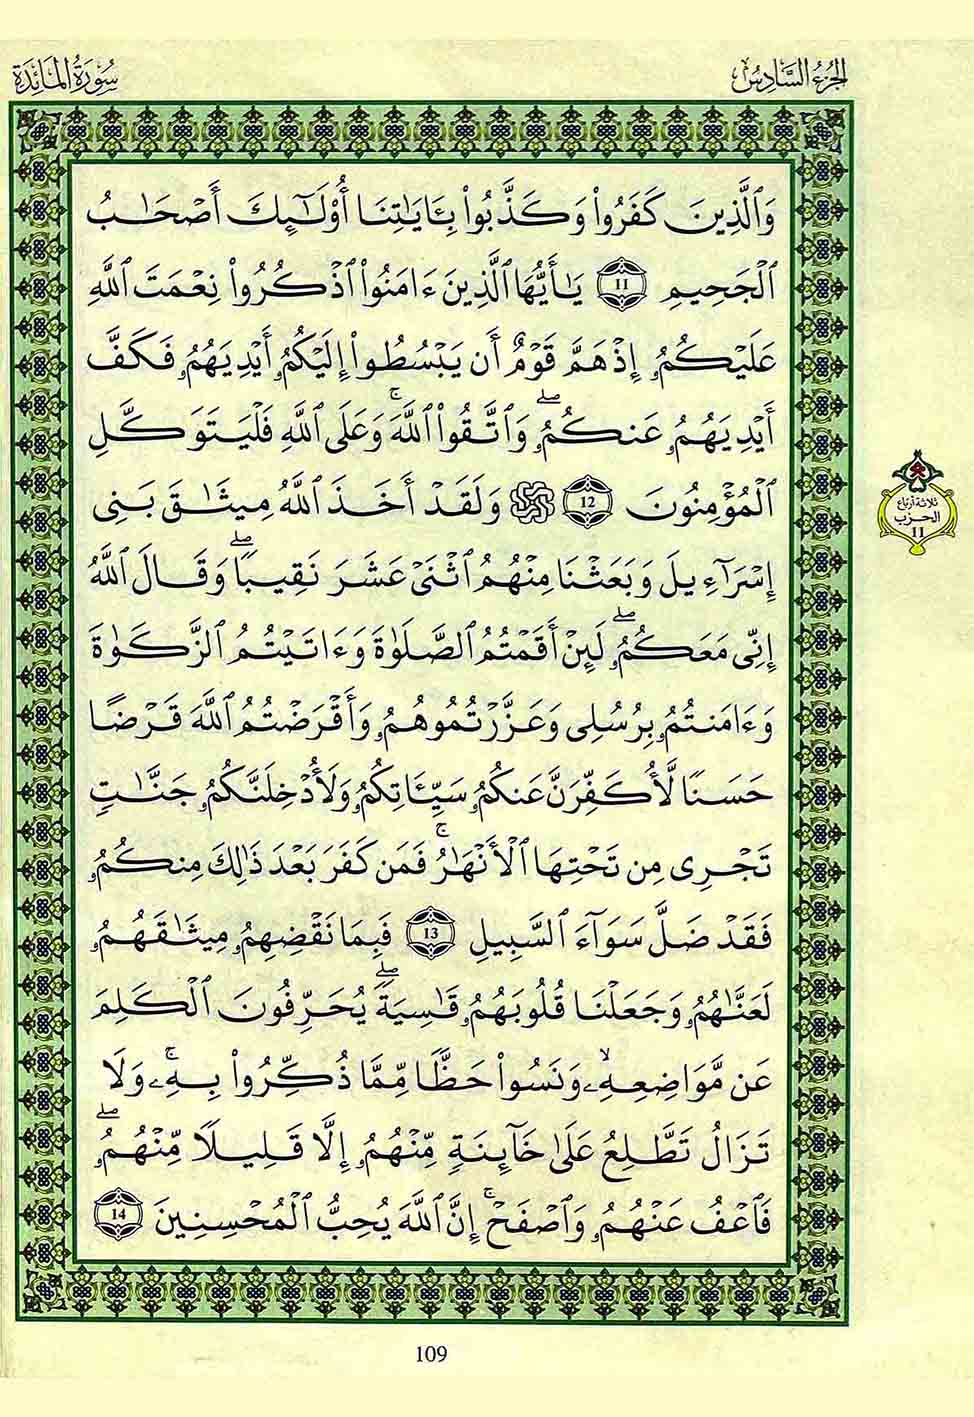 الجزء السادس
سورة المائدة
وَٱلَّذِينَ كَفَرُوا۟ وَكَذَّبُوا۟ بِـَٔايَٰتِنَا أُو۟لَٰٓئِكَ أَصْحَٰبُ
ٱلْجَحِيمِ 11 يَٰأَيُّهَا ٱلَّذِينَ ءَامَنُوا۟ ٱذْكُرُوا۟ نِعْمَتَ ٱللَّهِ
عَلَيْكُمُۥٓ إِذْ هَمَّ قَوْمٌ أَن يَبْسُطُوا۟ إِلَيْكُمُۥٓ أَيْدِيَهُمُۥ فَكَفَّ
أَيْدِيَهُمُۥ عَنكُمُۥۖ وَٱتَّقُوا۟ ٱللَّهَۚ وَعَلَى ٱللَّهِ فَلْيَتَوَكَّلِ
ٱلْمُؤْمِنُونَ 12 وَلَقَدْ أَخَذَ ٱللَّهُ مِيثَٰقَ بَنِى
إِسْرَآءِيلَ وَبَعَثْنَا مِنْهُمُ ٱثْنَىْ عَشَرَ نَقِيبًاۖ وَقَالَ ٱللَّهُ
إِنِّى مَعَكُمُۥۖ لَئِنْ أَقَمْتُمُ ٱلصَّلَوٰةَ وَءَاتَيْتُمُ ٱلزَّكَوٰةَ
وَءَامَنتُمُۥ بِرُسُلِى وَعَزَّرْتُمُوهُمُۥ وَأَقْرَضْتُمُ ٱللَّهَ قَرْضًا
حَسَنًا لَّأُكَفِّرَنَّ عَنكُمُۥ سَيِّـَٔاتِكُمُۥ وَلَأُدْخِلَنَّكُمُۥ جَنَّٰتٍ
تَجْرِى مِن تَحْتِهَا ٱلْأَنْهَٰرُۚ فَمَن كَفَرَ بَعْدَ ذَٰلِكَ مِنكُمُۥ
فَقَدْ ضَلَّ سَوَآءَ ٱلسَّبِيلِ 13 فَبِمَا نَقْضِهِمُۥ مِيثَٰقَهُمُۥ
لَعَنَّٰهُمُۥ وَجَعَلْنَا قُلُوبَهُمُۥ قَٰسِيَةًۖ يُحَرِّفُونَ ٱلْكَلِمَ
عَن مَّوَاضِعِهِۦۙ وَنَسُوا۟ حَظًّا مِّمَّا ذُكِّرُوا۟ بِهِۦۚ وَلَا
تَزَالُ تَطَّلِعُ عَلَىٰ خَآئِنَةٍ مِّنْهُمُۥٓ إِلَّا قَلِيلًا مِّنْهُمُۥۖ
فَٱعْفُ عَنْهُمُۥ وَٱصْفَحْۚ إِنَّ ٱللَّهَ يُحِبُّ ٱلْمُحْسِنِينَ 14
ثلاثة أرباع
الحزب
11
109